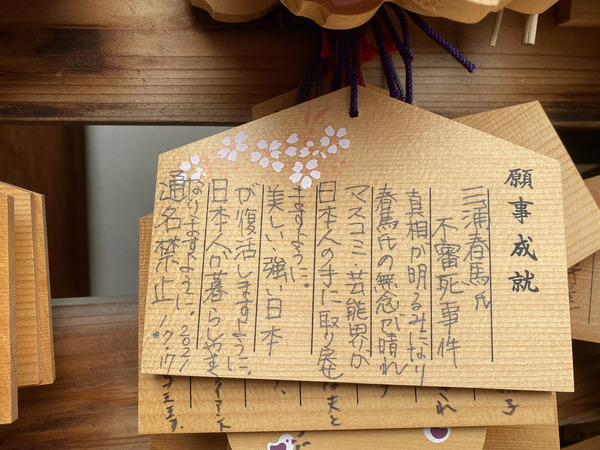 願事成就
三浦春馬氏
不審死事件
真相が明るみになり
春馬氏の無念が晴れ
マスコミ・芸能界が
日本人の手に取り戻せ
ますように。
美しい、強い日本
が復活しますように、
日本人が暮らしやすく
なりますように。2021
通名禁止